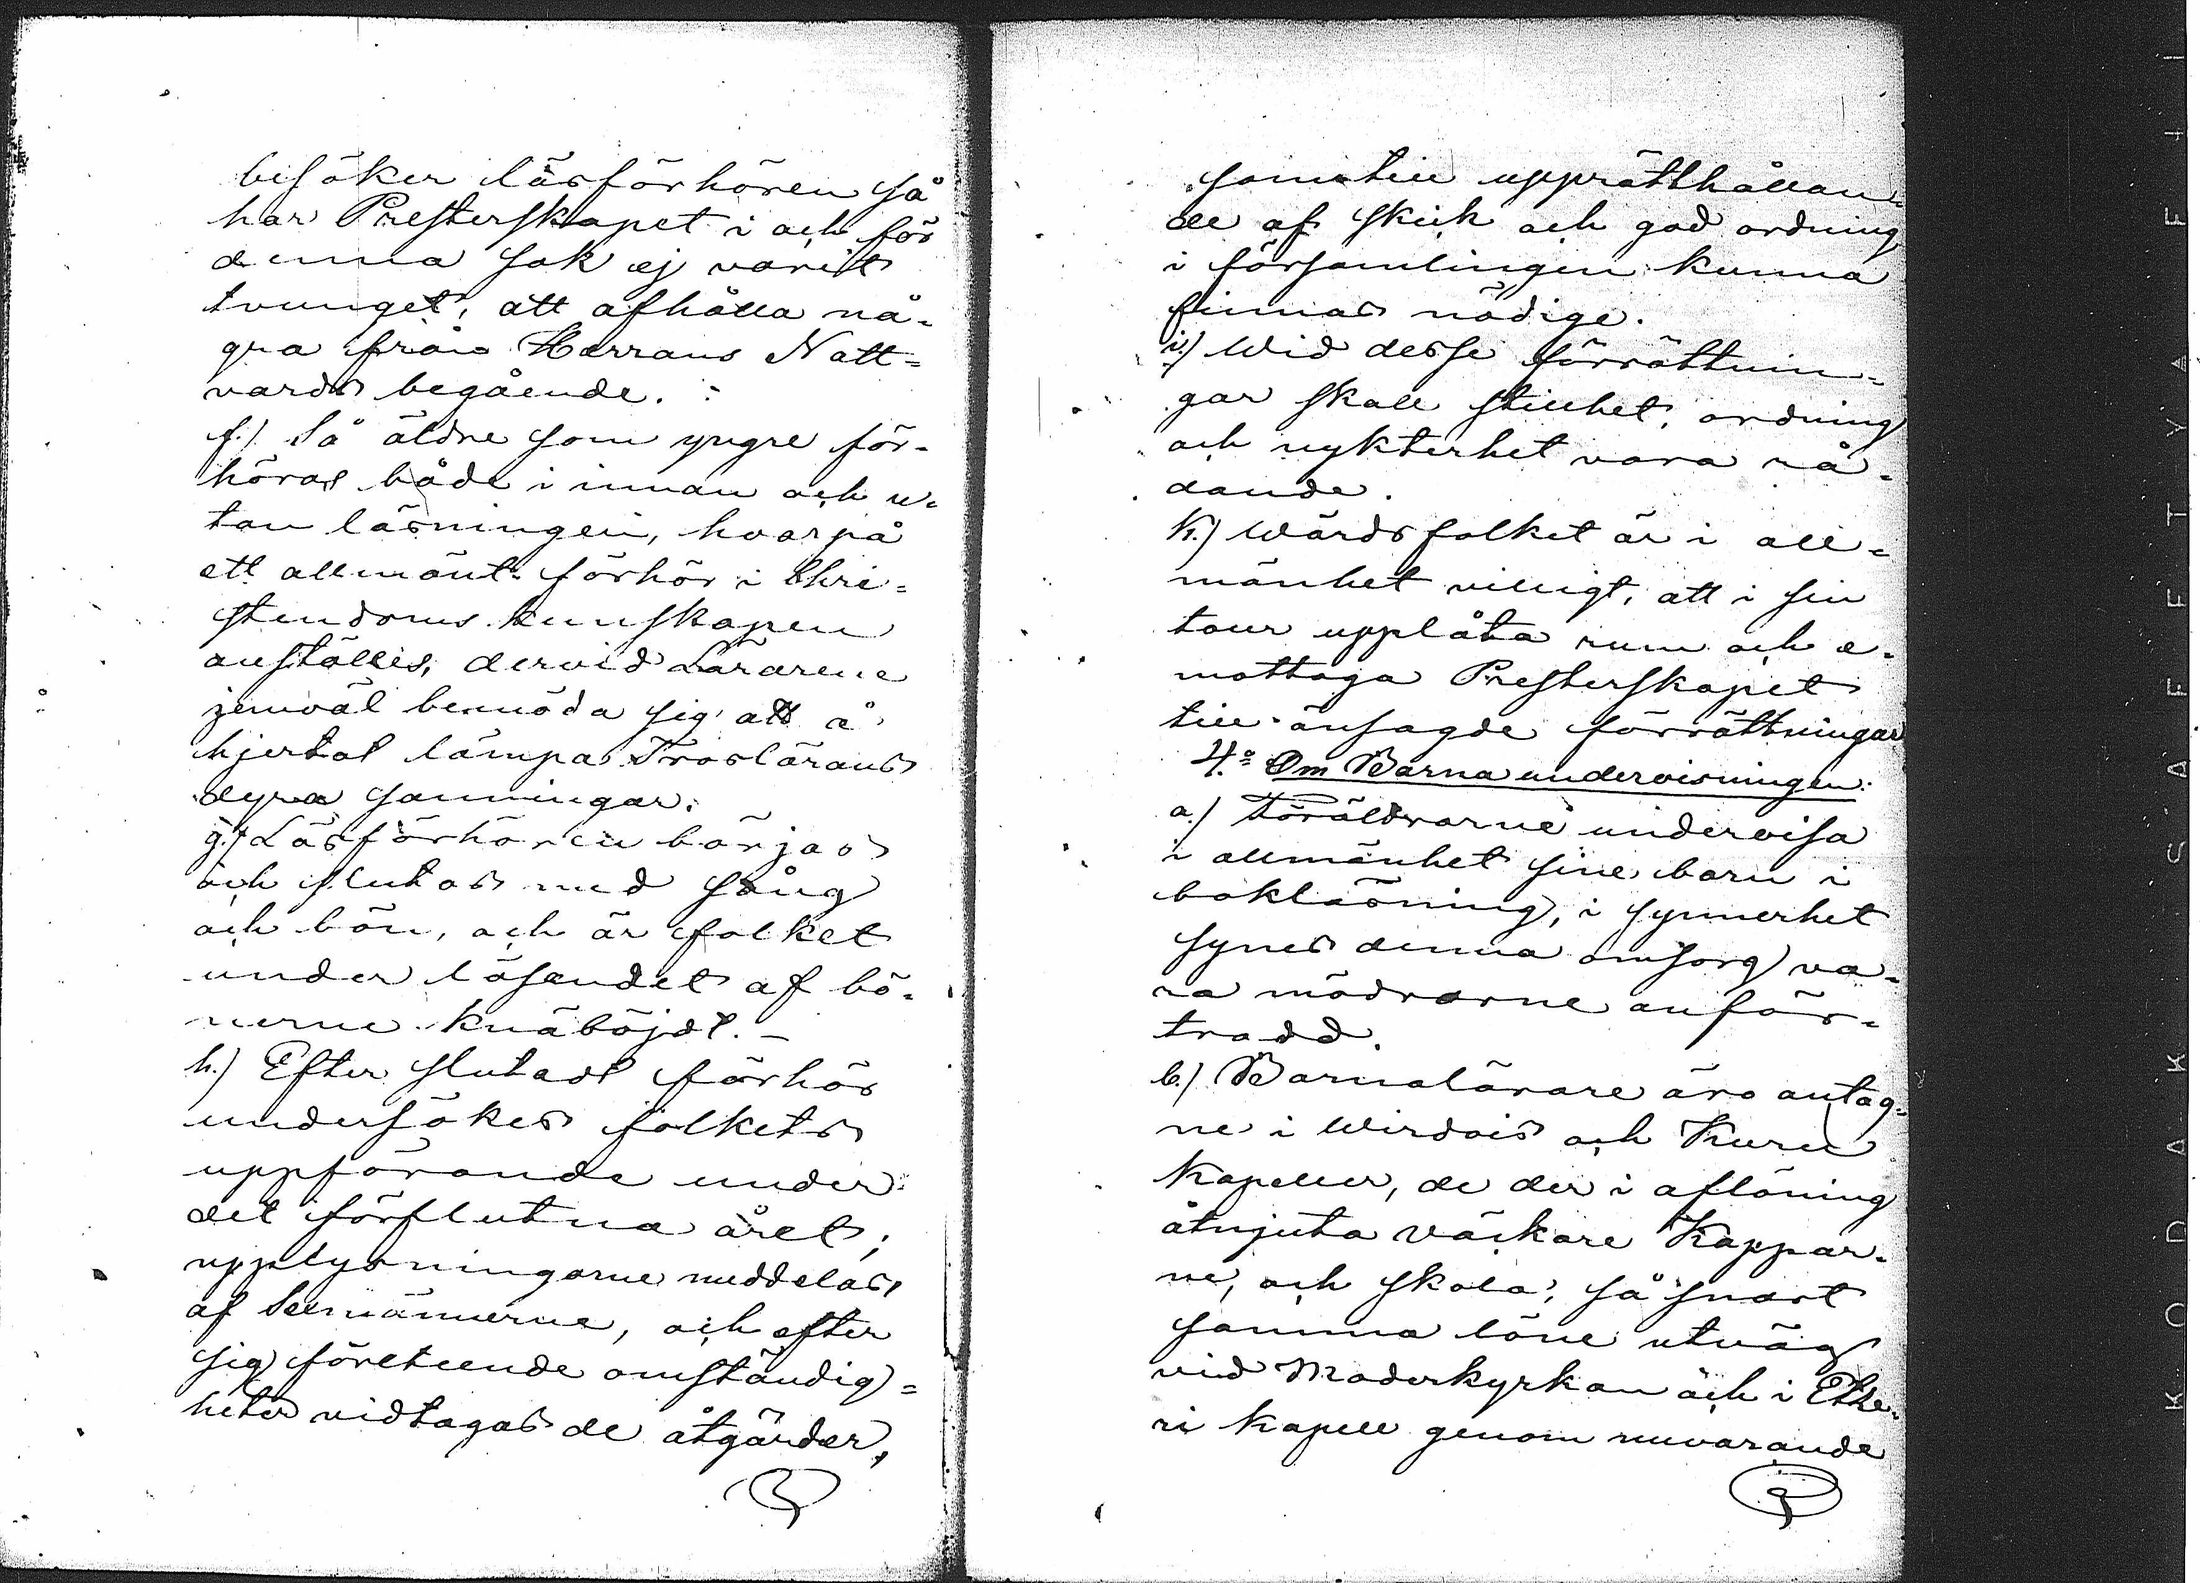 besöker läsförhören så
har Presterskapet i och för
denna sak ej varit
tvunget, att afhålla nå-
gra från Herrans Natt-
vards begående.
f.) Så äldre som yngre för-
höras både i innan och u-
tan läsningen, hvarpå
ett allmänt förhör i Chri-
stendoms kunskapen
anställes, dervid Lärarene
jemväl bemöda sig att å
hjertat lämpa Trosläran's
dyra sanningar.
g.) Läsförhören börjas
och slutas med sång
och bön, och är folket
under läsandet af bö-
nerne knäböjdt. -
h.) Efter slutadt förhör
undersökes folkets
uppförande under
det förflutna året;
upplysningarne meddelas
af Sexmännerne, och efter
sig företeende omständig-
heter vidtagas de åtgärder,
som till upprätthållan-
de af skick och god ordning
i församlingen kunna
finnas nödige.
i.) Wid desse förrättnin-
gar skall stillhet, ordning
och nykterhet vara rå-
dande.
k.) Wärdsfolket är i all-
mänhet villigt, att i sin
tour upplåta rum och e-
mottaga Presterskapet
till ansagde förrättningar
4.o Om Barnaundervisningen.
a.) Föräldrarne undervisa
i allmänhet sine barn i
bokläsning, i synnerhet
synes denna omsorg va-
ra mödrarne anför-
tradd.
b.) Barnalärare äro antag-
ne i Wirdois och Kuru
Kapeller, de der i aflöning
åtnjuta väckare Kappar-
ne, och skola, så snart
samma löne utväg
vid Moderkyrkan och i Ethe-
ri Kapell genom nuvarande